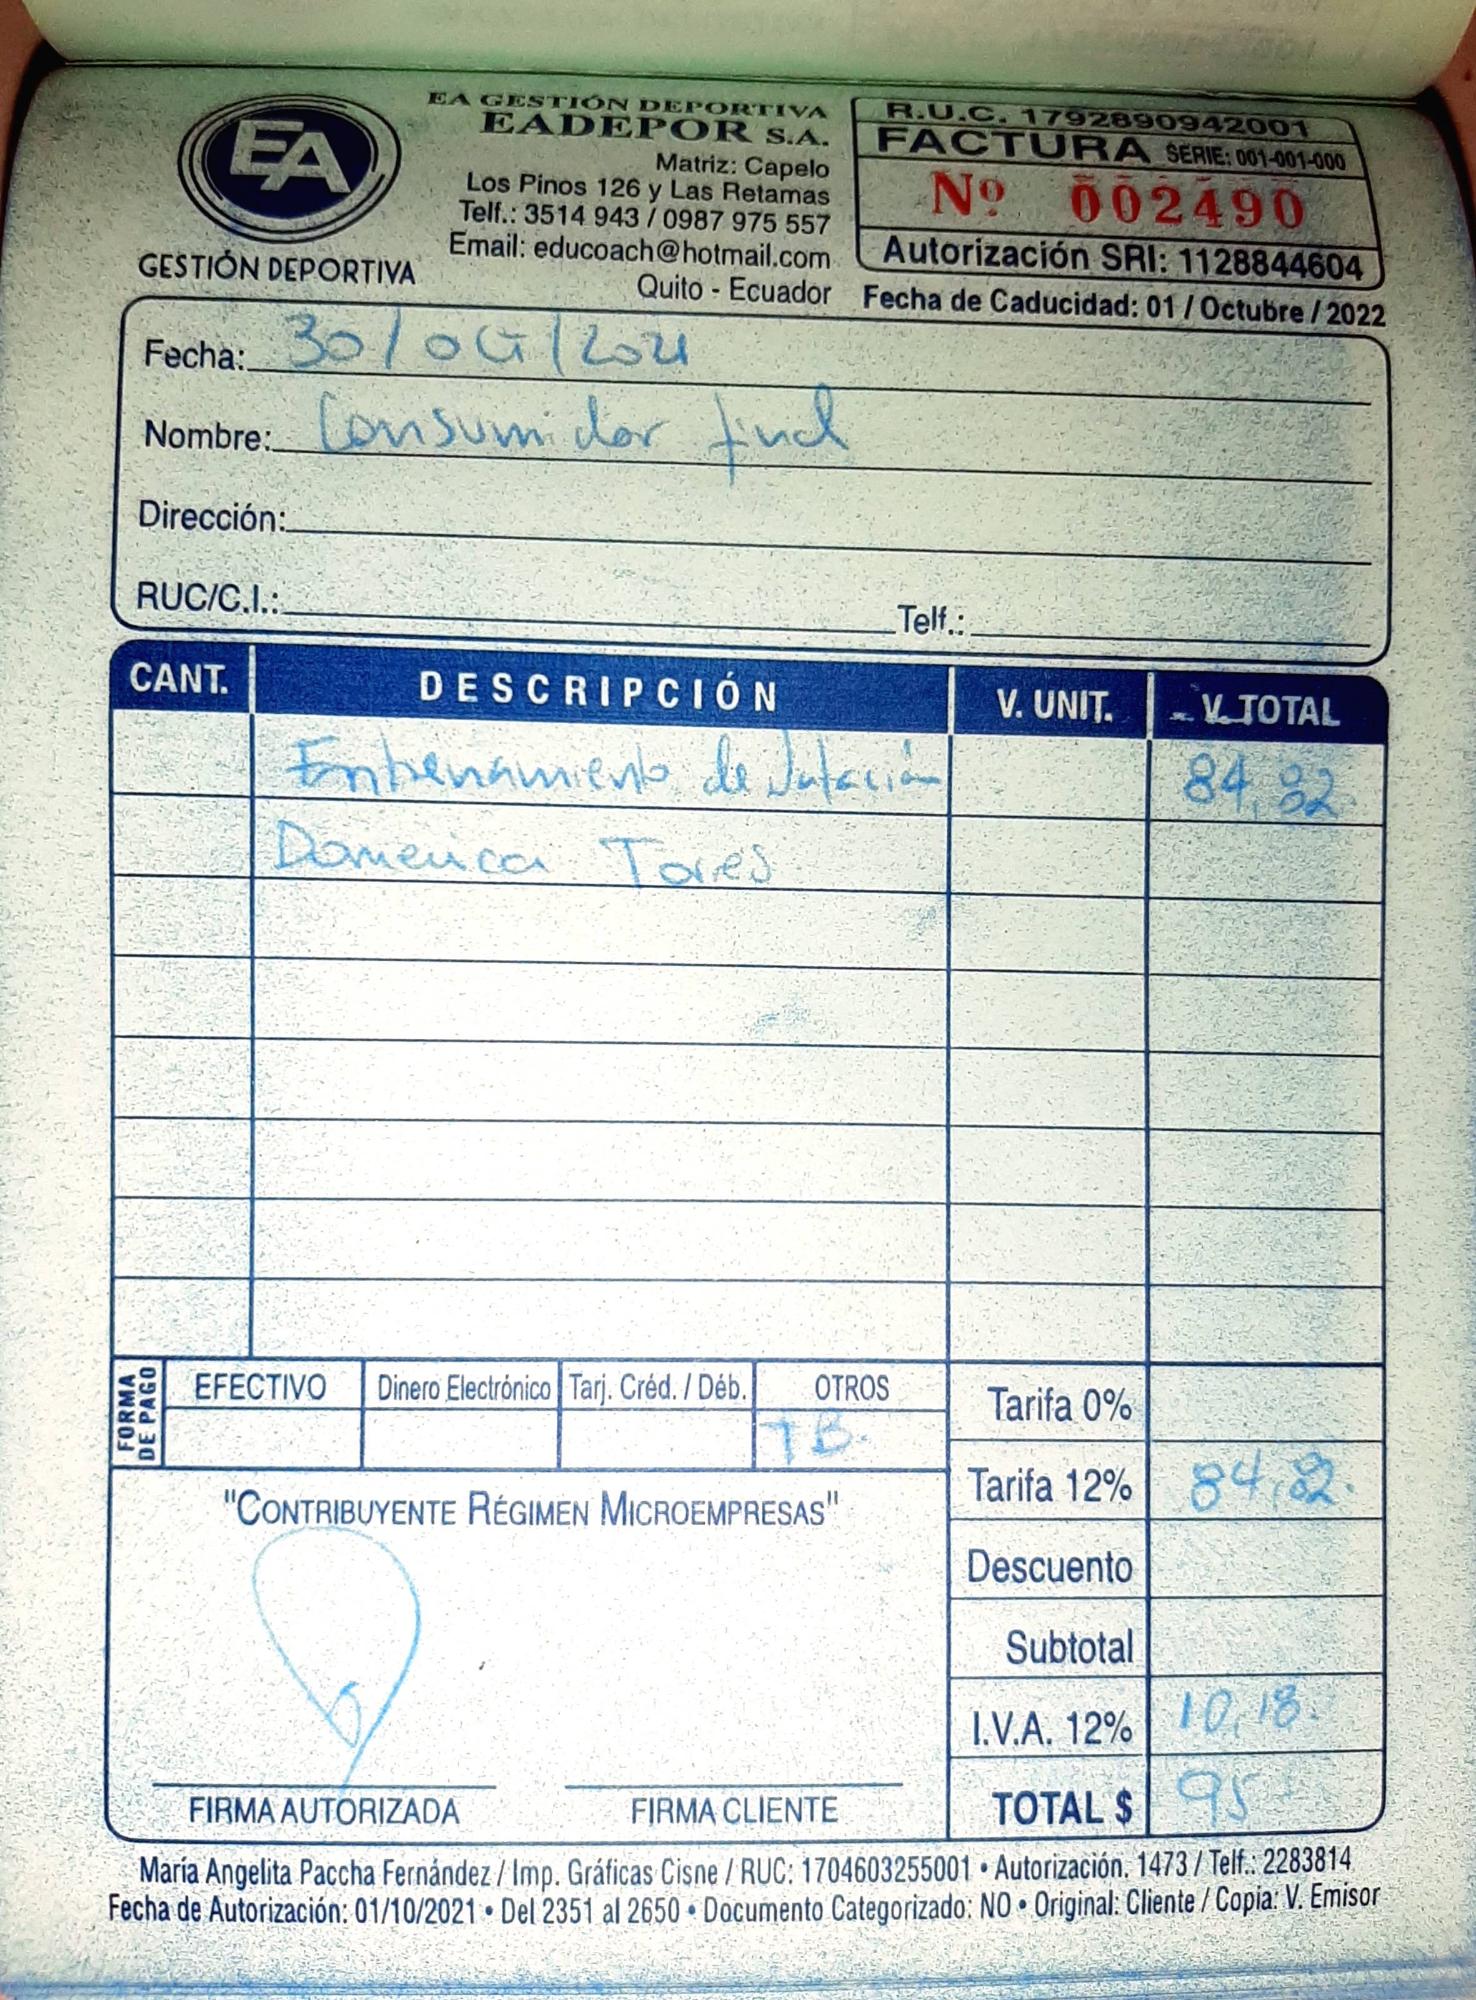 EA
GESTIÓN DEPORTIVA
EA GESTIÓN DEPORTIVA
EADEPOR S.A.
Matriz: Capelo
Los Pinos 126 y Las Retamas
Telf.: 3514 943 / 0987 975 557
Email: educoach@hotmail.com
Quito - Ecuador
R.U.C. 1792890942001
FACTURA SERIE: 001-001-000
Nº 002490
Autorización SRI: 1128844604
Fecha de Caducidad: 01 / Octubre / 2022
Fecha: 30/oct/2021
Nombre: Consumidor final
Dirección:
RUC/C.I.: Telf.:
CANT. DESCRIPCIÓN V. UNIT. V. TOTAL
Entrenamiento de Natación 84,82
Domenica Torres
FORMA DE PAGO
EFECTIVO Dinero Electrónico Tarj. Créd. / Déb. OTROS
TB.
Tarifa 0%
Tarifa 12% 84,82
Descuento
Subtotal
I.V.A. 12% 10,18
TOTAL $ 95
"CONTRIBUYENTE RÉGIMEN MICROEMPRESAS"
FIRMA AUTORIZADA FIRMA CLIENTE
María Angelita Paccha Fernández / Imp. Gráficas Cisne / RUC: 1704603255001 • Autorización. 1473 / Telf.: 2283814
Fecha de Autorización: 01/10/2021 • Del 2351 al 2650 • Documento Categorizado: NO • Original: Cliente / Copia: V. Emisor